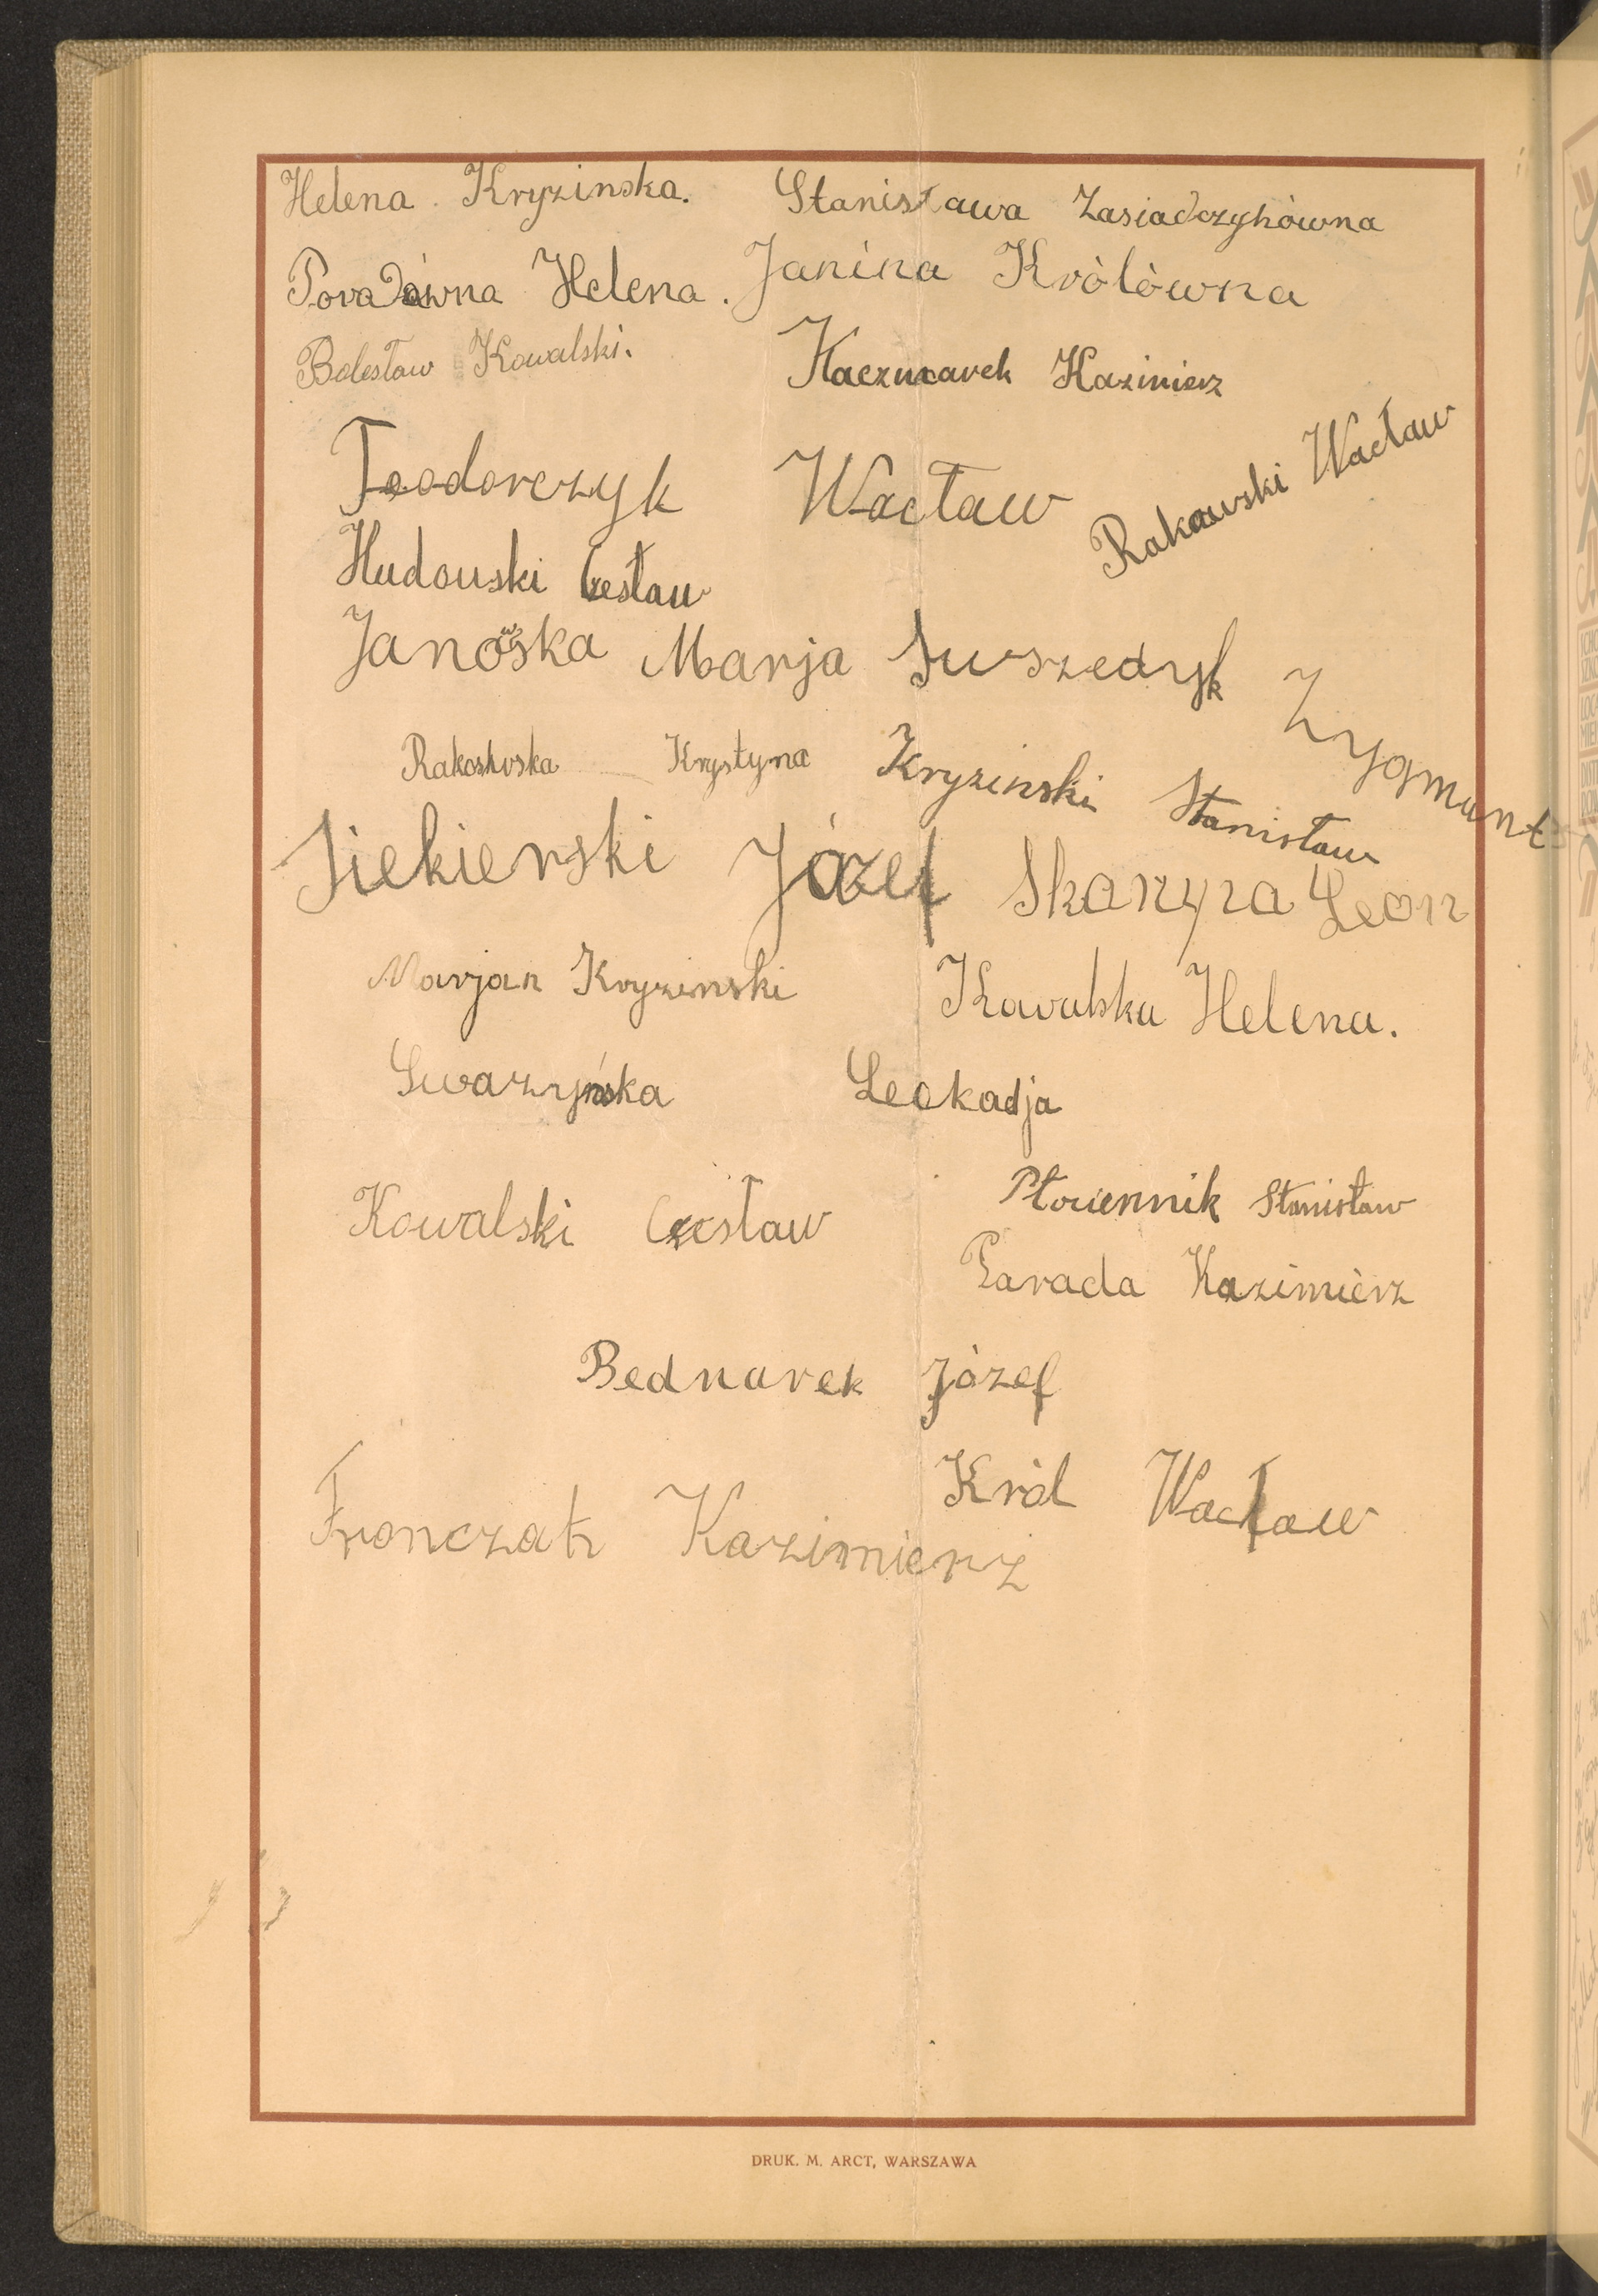 Helena Kryzinska. Stanisława Zasiadczykówna
Poradówna Helena. Janina Królówna
Bolesław Kowalski. Kaczmarek Kazimierz
Teodorczyk Wacław Rakawski Wacław
Hudouski Czesław
Janowska Marja Suszedyk Zygmunt
Krystyna Kryzinski Stanisław
Siekierski Józef Skoryra Leon
Marjan Kryzinski Kowalska Helena.
Swarzyńska Leokadja
Kowalski Czesław Płociennik Stanisław
Parada Kazimierz
Bednarek Józef
Król Wacław
Fronczak Kazimierz
DRUK. M. ARCT, WARSZAWA